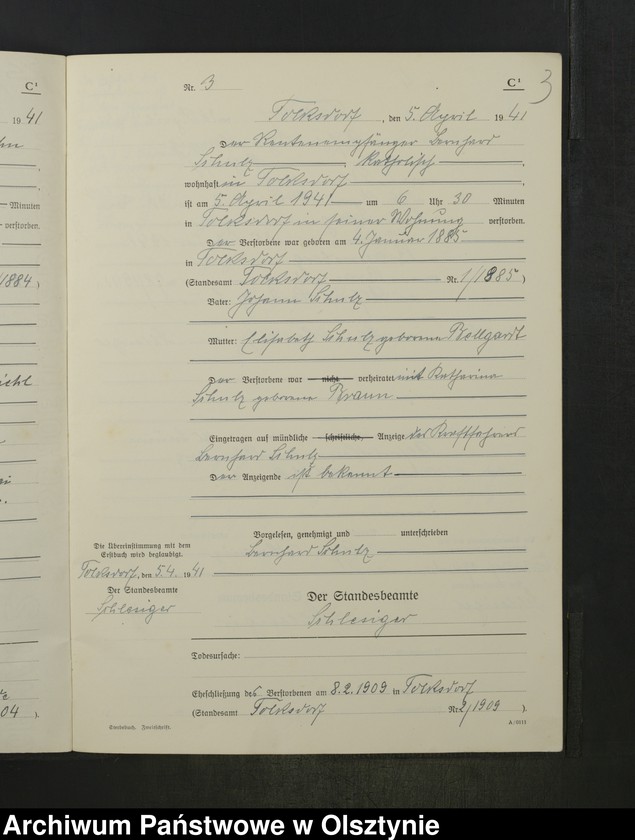 C¹
19 41
Minuten
verstorben.
1884 )
04 ).
Nr. 3 C¹ 3
Tolksdorf, den 5. April 19 41
Der Rentenempfänger Bernhard
Schulz, katholisch,
wohnhaft in Tolksdorf,
ist am 5. April 1941 um 6 Uhr 30 Minuten
in Tolksdorf in seiner Wohnung verstorben.
Der Verstorbene war geboren am 4. Januar 1885
in Tolksdorf
(Standesamt Tolksdorf Nr. 1/1885)
Vater: Johann Schulz
Mutter: Elisabeth Schulz geborene
Der Verstorbene war nicht verheiratet mit Katharina
Schulz geborene Braun
Eingetragen auf mündliche schriftliche, Anzeige des Kraftfahrers
Bernhard Schulz
Der Anzeigende ist bekannt
Vorgelesen, genehmigt und unterschrieben
Bernhard Schulz
Die Übereinstimmung mit dem
Erstbuch wird beglaubigt.
Tolksdorf, den 5.4. 19 41
Der Standesbeamte
Schlesiger
Der Standesbeamte
Schlesiger
Todesursache:
Eheschließung des Verstorbenen am 8.2.1909 in Tolksdorf
(Standesamt Tolksdorf Nr. 2/1909 ).
Sterbebuch. Zweitschrift.
Archiwum Państwowe w Olsztynie